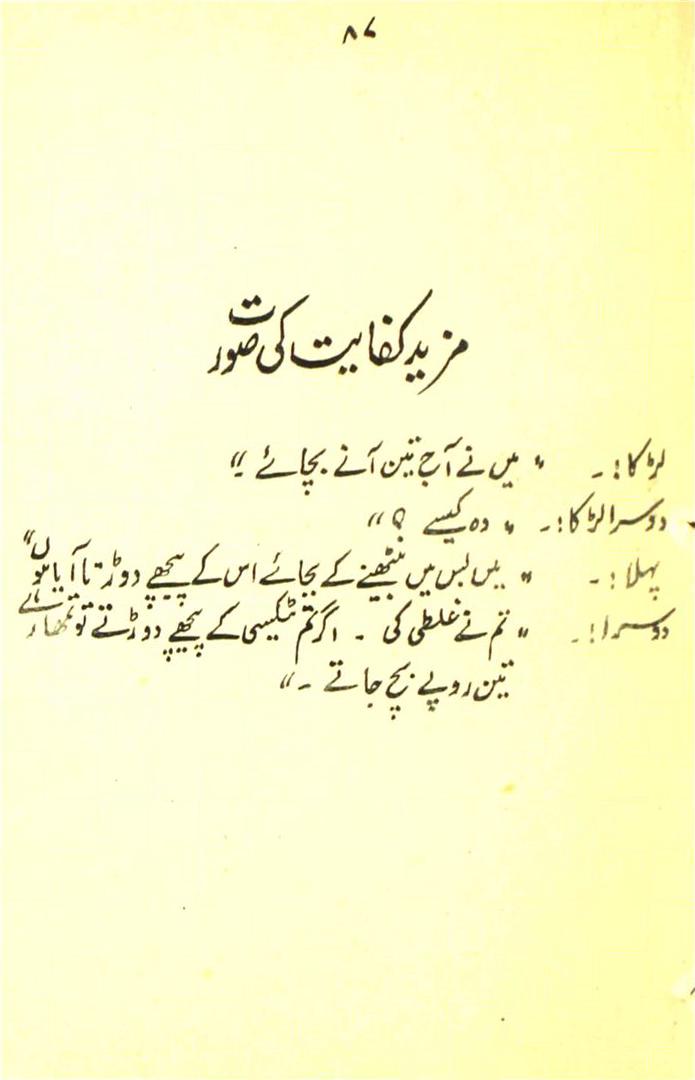 ۸۷
مزید کفایت کی صورت
لڑکا:۔ "میں نے آج تین آنے بچائے ۔"
دوسرا لڑکا:۔ "وہ کیسے ؟"
پہلا:۔ "میں بس میں بیٹھنے کے بجائے اس کے پیچھے دوڑتا آیا ہوں"
دوسرا:۔ "تم نے غلطی کی ۔ اگر تم ٹیکسی کے پیچھے دوڑتے تو تمھارے
تین روپے بچ جاتے ۔"